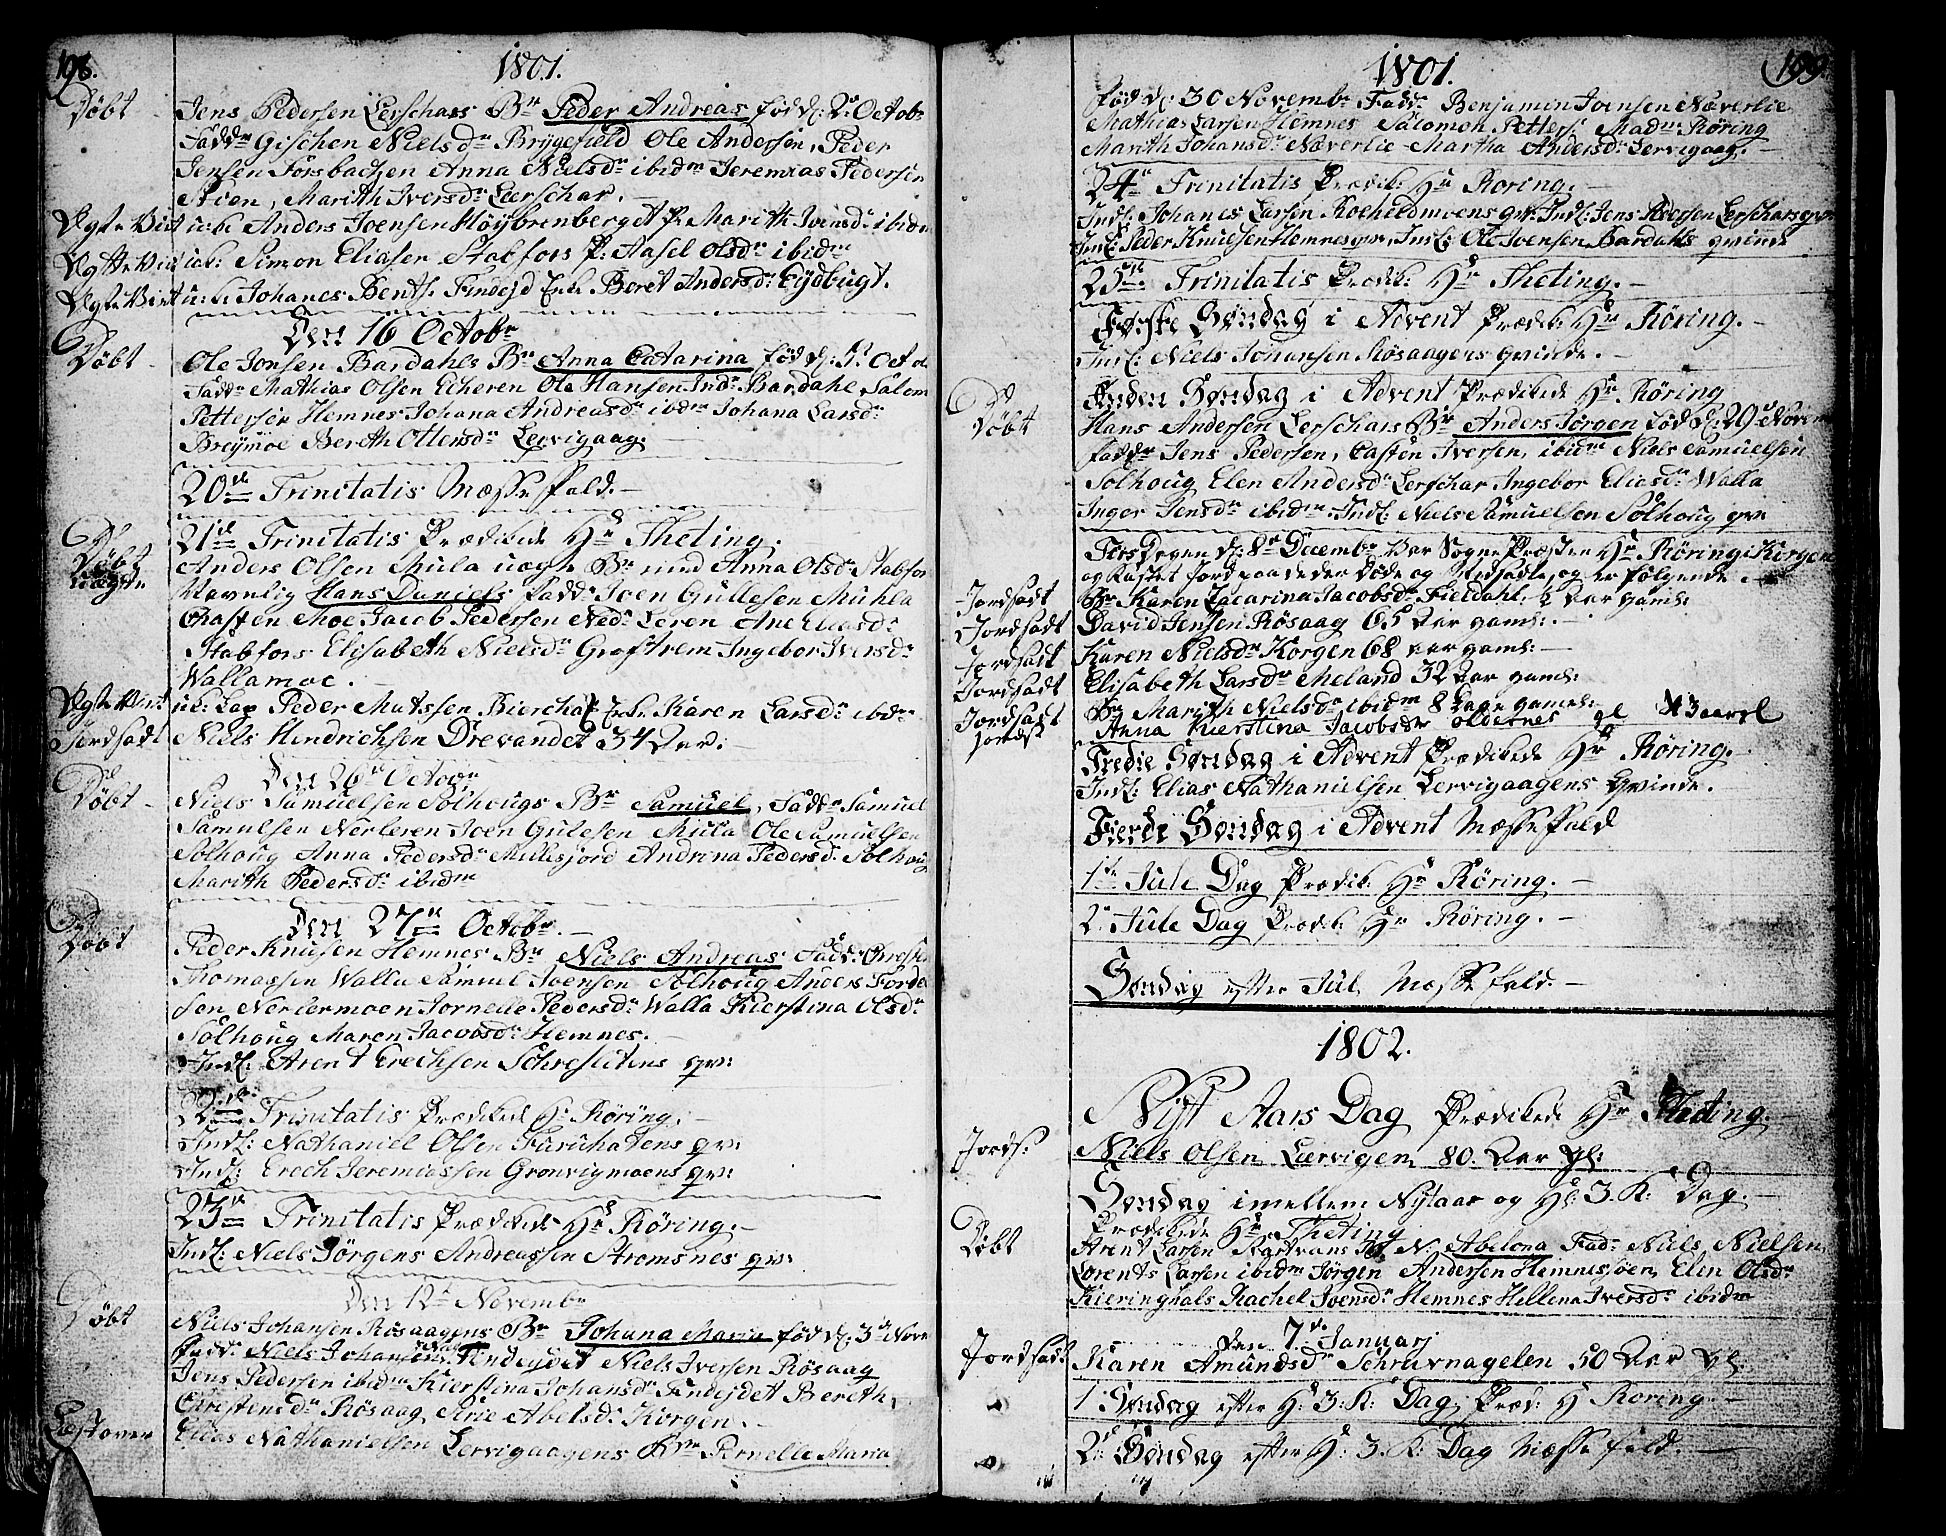 198.
1801.
Døbt
Jens Pedersen Lerschars Bn Peder Andreas fød d: 2 Octobr
Faddr Gischen Nielsdr Brygefield Ole Andersen, Peder
Jensen Forsbachen Anna Nielsdr ibidm Jeremias Pedersen
Moen, Marith Iversdr Lerschar.
Anders Joensen Høybrenberget P: Marith Joensdr ibidm
Simon Eliasen Stabfors P: Aasel Olsdr ibidm
Johanes Bents: Findejd Enke Beret Andersdr Eydbugt.
Den 16 Octobr
Døbt
Ole Jonsen Bardahls Bn Anna Catarina fød d: 5 Octo
Faddr Mathias Olsen Echeren Ole Hansen Indr Bardahl Salom
Pettersen Hemnes Johana Andreasdr ibidm Johana Larsdr
Breymoe Bereth Ottersdr Lervigaag.
20de Trinitatis Mæssefald.
21de Trinitatis Prædikede Hr Theting.
Døbt
uægte
Anders Olsen Mula uægte Bn med Anna Olsdr Stabfor
Navnlig Hans Daniels Fadd: Joen Gullesen Muhla
Chasten Moe Jacob Pedersen Ned: Leren Ane Eliasdr
Stabfors Elisabeth Nielsdr Grostrem Ingebor Iversdr
Wallamoe.
Lap Peder Matssen Bierchas Enke Karen Larsdr ibidm
Jordfadt
Niels Hendrichsen Drevandet 34 Aar:
Den 26 Octobr
Døbt
Niels Samuelsen Solhougs Bn Samuel, Faddr Samuel
Samulsen Nerleren Joen Gulesen Mula Ole Samuelsen
Solhoug Anna Pedersdr Millesjord Andrina Pedersdr Solhoug
Marith Pedersdr ibidm
Den 27de Octobr.
Døbt
Peder Knusen Hemnes Bn Niels Andreas Fadr: Christen
Thomassen Walla Samuel Joensen Solhoug Anders Torde
sen Nerlermoen Jornelle Pedersdr Walla Kierstina Olsdr
Solhoug Maren Jacobsdr Hemnes.
Indl: Arent Erechsen Schreslitens qv:
22de Trinitatis Prædikede H: Röring.
Indl: Nathaniel Olsen Furuhatens qv:
Indl: Erech Jeremiassen Grönvigmoens qv:
23de Trinitatis Prædikede Hr Röring.
Indl: Niels Jörgens Andreassen Stromsnes qv:
Den 12te Novembr
Døbt
Niels Johansen Røsaagens Bn Johana Maria fød d: 3de Nove
Faddr Niels Johansen Findeydet Niels Iversen Røsaag
Jens Pedersen ibidm Kierstina Johansdr Findejdet Bereth
Christensdr Røsaag Sirie Abelsdr Korgen.
Elias Nathanielsen Lervigaagens Bn Pernelle Maria
199.
1801.
fød d: 30 Novembr Faddr Benjamin Joensen Næverlie
Mathias Larsen Hemnes Salomon Petters: Madme Röring
Marith Johansdr Næverlie Martha Andersdr Lervigaag.
24de Trinitatis Prædik: Hr Roring.
Indl: Johanes Larsen Roeheldmoens qv: Indl: Jens Pedersen Lerschars qv
Indl: Peder Knudsen Hemnes qv: Indl: Ole Joensen Bardahls qvinde
25de Trinitatis Prædik: Hr Theting.
Første Søndag i Advent Prædik: Hr Röring.
Indl: Niels Johansen Røsaagens qvinde.
Anden Søndag i Advent Prædikede Hr Röring
Døbt
Hans Andersen Lerschars Bn Anders Jörgen fød d: 29 Novem
Faddr Jens Pedersen, Casten Iversen, ibidm Niels Samuelsen
Solhoug Elen Andersdr Lerschar Ingebor Eliasdr Walla
Inger Jensdr ibidm: Indl: Niels Samuelsen Solhoug qv:
Tirsdagen d: 8de Decembr Var Sogne Præsten Hr Röring i Korgen
og Kastet Jord paa de der Døde og Nedsadte, og er følgende
Jordfadt
Bn Karen Cacarina Jacobsdr Fieldahl. 2 Aar gaml:
Jordfadt
David Jensen Røsaag 65 Aar gaml:
Jordfadt
Karen Nielsdr Korgen 68 aar gaml:
Jordfadt
Elisabeth Larsdr Meland 32 Aar gaml:
Jordfadt
Bn Marith Nielsdr ibidm 8 Dage gamel:
Jordf
Anna Kierstina Jacobsdr Oldernes gl 43 aar
Tredie Søndag i Advent Prædikede Hr Röring.
Indl: Elias Nathanielsen Lervigaagens Qvinde.
Fierde Søndag i Advent Mæssefald
1te Jule Dag Prædik: Hr Röring.
2: Jule Dag Prædik: Hr Röring.
Søndag efter Jul Messefald.
1802.
Nytt Aars Dag Prædikede Hr Theting.
Jords:
Niels Olsen Lærvigen 80. Aar gl:
Søndag imellem Nytaar og H: 3. K: Dag.
Prædikede Hr Theting
Døbt
Arent Larsen N. Abelona Fadr: Niels Nielsen
Lorents Larsen ibidm Jörgen Andersen Hemnesøen, Elen Olsdr
Kieringhals Rachel Joensdr Hemnes Hellena Iversdr ibidm
Den 7de Januarj
Jordfadt
Karen Amundsdr Schruvnagelen 50 Aar gl
1 Søndag efter H: 3: K: Dag Præd: H Roring.
2: Søndag efter H: 3. K: Dag Mæssefald.